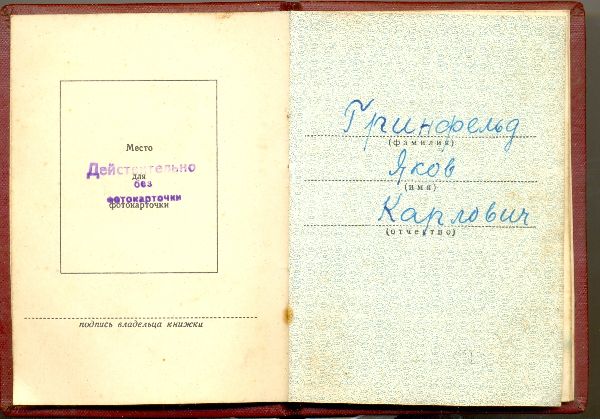 Место
Действительно
для
без
фотокарточки
фотокарточки
подпись владельца книжки
Гринфельд
(фамилия)
Яков
(имя)
Карлович
(отчество)